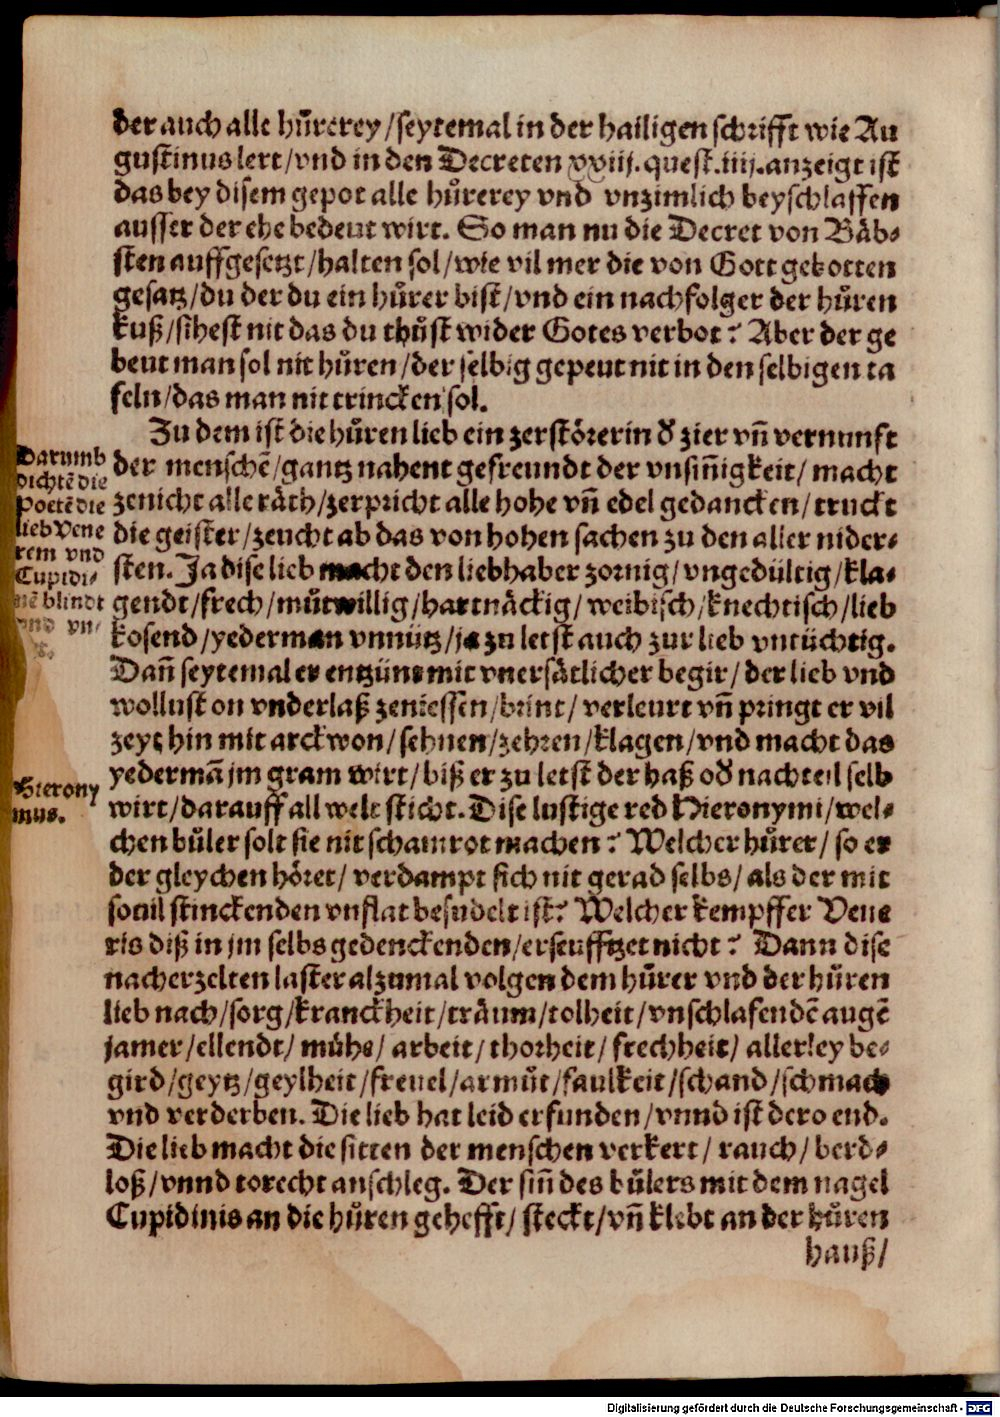 der auch alle hůrerey/seytemal in der hailigen schrifft wie Au
gustinus lert/vnd in den Decreten xxiij.quest.iiij.anzeigt ist
das bey disem gepot alle hůrerey vnd vnzimlich beyschlaffen
ausser der ehe bedeut wirt. So man nu die Decret von Bäb⸗
sten auffgesetzt/halten sol/wie vil mer die von Gott gebotten
gesatz/du der du ein hůrer bist/vnd ein nachfolger der hůren
kuß/sihest nit das du thůst wider Gotes verbot? Aber der ge
beut man sol nit hůren/der selbig gepeut nit in den selbigen ta
feln/das man nit trincken sol.
Zu dem ist die hůren lieb ein zerstörerin d̓ zier vn̄ vernunft
der menschē/gantz nahent gefreundt der vnsin̄igkeit/ macht
zenicht alle räth/zerpricht alle hohe vn̄ edel gedancken/truckt
die geister/zeucht ab das von hohen sachen zu den aller nider⸗
sten. Ja dise lieb macht den liebhaber zornig/vngedültig/kla⸗
gendt/frech/můtwillig/hartnäckig/weibisch/knechtisch/lieb
kosend/yederman vnnütz/ja zu letst auch zur lieb vntüchtig.
Dan̄ seytemal er entzünt mit vnersätlicher begir/der lieb vnd
wollust on vnderlaß zeniessen/brint/ verleurt vn̄ pringt er vil
zeyt hin mit arckwon/sehnen/zehren/klagen/vnd macht das
yedermā jm gram wirt/biß er zu letst der haß od̓ nachteil selb
wirt/darauff all welt sticht. Dise lustige red Hieronymi/wel⸗
chen bůler solt sie nit schamrot machen? Welcher hůrer/ so er
der gleychen höret/ verdampt sich nit gerad selbs/als der mit
souil stinckenden vnflat besudelt ist? Welcher kempffer Vene
ris diß in jm selbs gedenckenden/erseufftzet nicht? Dann dise
nacherzelten laster alzumal volgen dem hůrer vnd der hůren
lieb nach/sorg/kranckheit/träum/tolheit/vnschlafendē augē
jamer/ellendt/ můhe/ arbeit/thorheit/ frechheit/ allerley be⸗
gird/geytz/geylheit/freuel/armůt/faulkeit/schand/schmach
vnd verderben. Die lieb hat leid erfunden/vnnd ist dero end.
Die lieb macht die sitten der menschen verkert/ rauch/ berd⸗
loß/vnnd torecht anschleg. Der sin̄ des bůlers mit dem nagel
Cupidinis an die hůren gehefft/ steckt/vn̄ klebt an der hůren
hauß/
Darumb
dichtē die
Poetē die
lieb Vene
rem vnd
Cupidi⸗
nē blindt
vnd vn⸗
Hierony
mus.
Digitalisierung gefördert durch die Deutsche Forschungsgemeinschaft - DFG